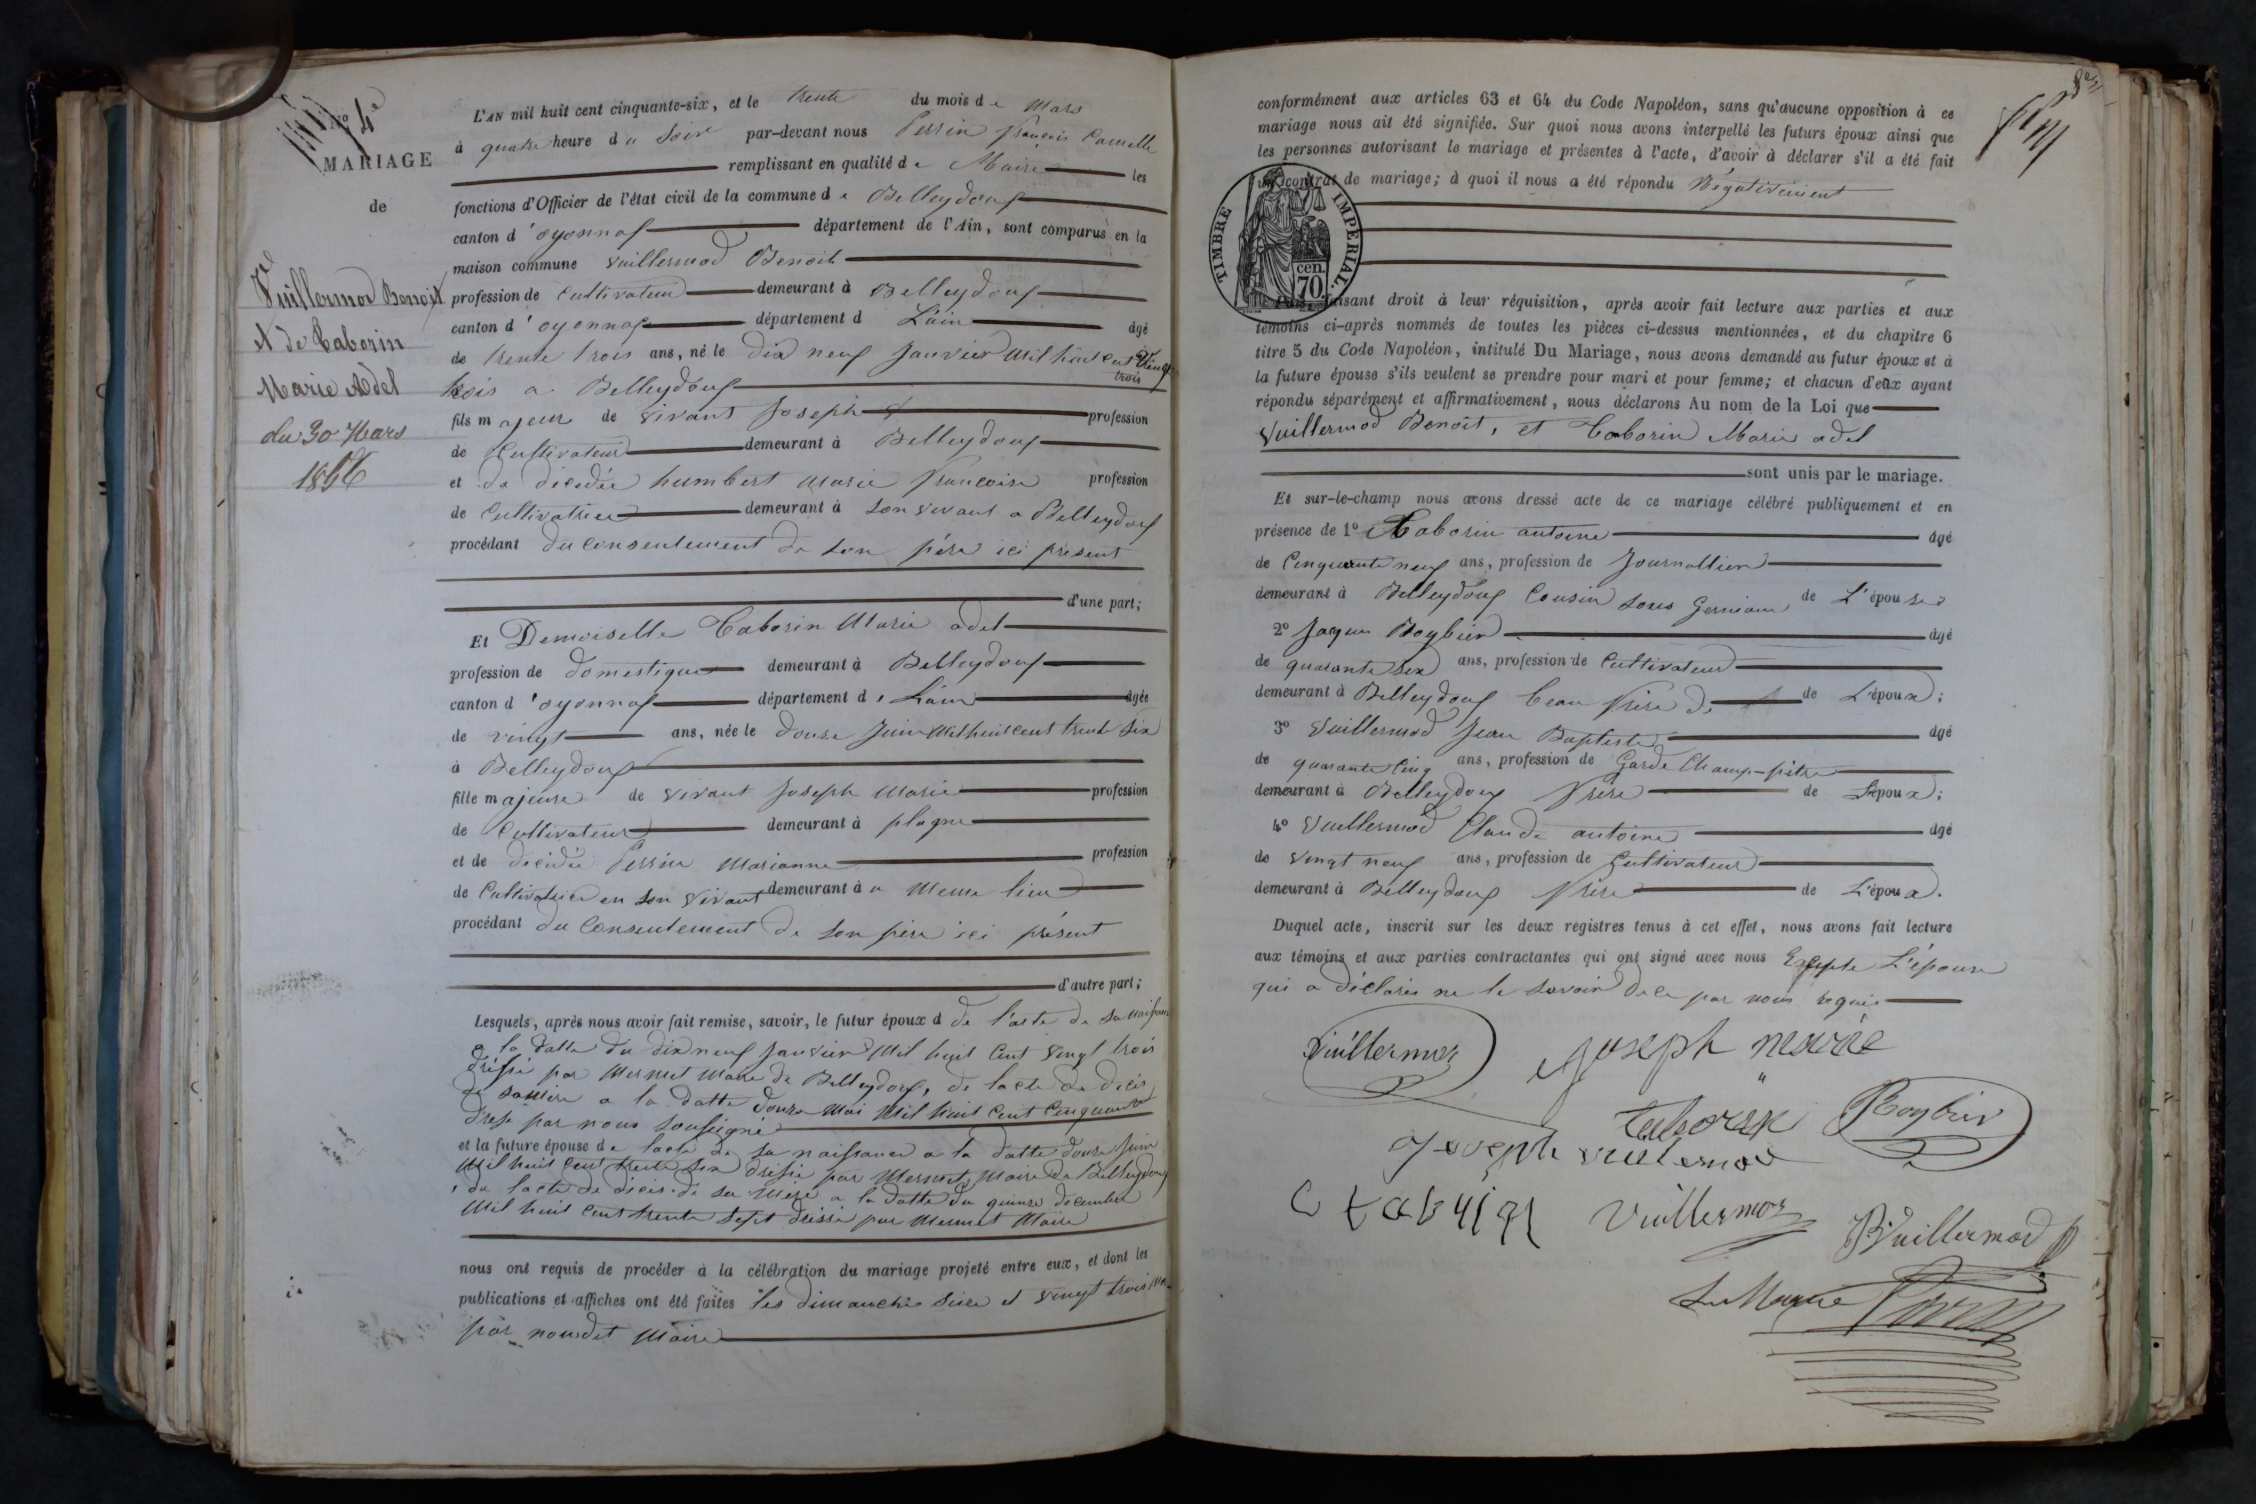 N° 4e
MARIAGE
de
Vuillermod Benoit
A de Taborin
Marie Adel
du 30 Mars
1856
L'AN mil huit cent cinquante-six, et le trente du mois de Mars
à quatre heure du Soir par-devant nous Perrin françois Camille
remplissant en qualité de Maire les
fonctions d'Officier de l'état civil de la commune de Belleydoux
canton d'oyonnax département de l'Ain, sont comparus en la
maison commune Vuillermod Benoit
profession de Cultivateur demeurant à Belleydoux
canton d'oyonnax département d L'ain âgé
de trente trois ans, né le dix neuf Janvier Mil huit cent Vingt
trois
trois a Belleydoux
fils majeur de vivant Joseph profession
de Cultivateur demeurant à Belleydoux
et de décidée humbert Marie françoise profession
de Cultivatrice demeurant à son vivant a Belleydoux
procédant du consentement de son père ici présent
d'une part;
Et Demoiselle Taborin Marie adel
profession de domestique demeurant à Belleydoux
canton d'oyonnax département de L'ain âgée
de vingt ans, née le douze Juin Mil huit cent trente six
à Belleydoux
fille majeure de vivant Joseph Marie profession
de Cultivateur demeurant à plagne
et de décidée Perrin Marianne profession
de Cultivatrice en son vivant demeurant à a Meme lieu
procédant du Consentement de son père ici présent
d'autre part;
Lesquels, après nous avoir fait remise, savoir, le futur époux d de l'acte de sa naissance
a la datte du dix neuf Janvier Mil huit Cent vingt trois
dréssé par Mermet Maire de Belleydoux, de lacte de décès
de samère a la datte douze Mai Mil huit Cent Cinquante
dressé par nous soussigné
et la future épouse de lacte de sa naissance a la datte douze Juin
Mil huit Cent trente six dréssé par Mermet Maire de Belleydoux
, de lacte de décès de sa Mère a la datte du quinze décembre
Mil huit Cent trente sept dréssé par Mermet Maire
nous ont requis de procéder à la célébration du mariage projeté entre eux, et dont les
publications et affiches ont été faites les dimanches seize et vingt trois
par nousdit Maire
conformément aux articles 63 et 64 du Code Napoléon, sans qu'aucune opposition à ce
mariage nous ait été signifiée. Sur quoi nous avons interpellé les futurs époux ainsi que
les personnes autorisant le mariage et présentes à l'acte, d'avoir à déclarer s'il a été fait
un contrat de mariage; à quoi il nous a été répondu Négativement
TIMBRE IMPERIAL
70 cen.
Puis, faisant droit à leur réquisition, après avoir fait lecture aux parties et aux
témoins ci-après nommés de toutes les pièces ci-dessus mentionnées, et du chapitre 6
titre 5 du Code Napoléon, intitulé Du Mariage, nous avons demandé au futur époux et à
la future épouse s'ils veulent se prendre pour mari et pour femme; et chacun d'eux ayant
répondu séparément et affirmativement, nous déclarons Au nom de la Loi que
Vuillermod Benoit, et Taborin Marie adel
sont unis par le mariage.
Et sur-le-champ nous avons dressé acte de ce mariage célébré publiquement et en
présence de 1° Taborin antoine âgé
de Cinquante neuf ans, profession de Journallier
demeurant à Belleydoux Cousin sous Germain de L'épouse
2° Jaques Boybier âgé
de quarante six ans, profession de Cultivateur
demeurant à Belleydoux beau frère de de L'époux;
3° Vuillermod Jean Baptiste âgé
de quarante Cinq ans, profession de Garde Champ-pêtre
demeurant à Belleydoux frère de L'époux;
4° Vuillermod Claude antoine âgé
de vingt neuf ans, profession de Cultivateur
demeurant à Belleydoux frère de L'époux.
Duquel acte, inscrit sur les deux registres tenus à cet effet, nous avons fait lecture
aux témoins et aux parties contractantes qui ont signé avec nous Excepte L'épouse
qui a déclarée ne le savoir de ce par nous requis
Vuillermoz Joseph marie
taborin Boybier
Joseph vuilermod
Vuillermoz BVuillermod
Le Maire Perrin